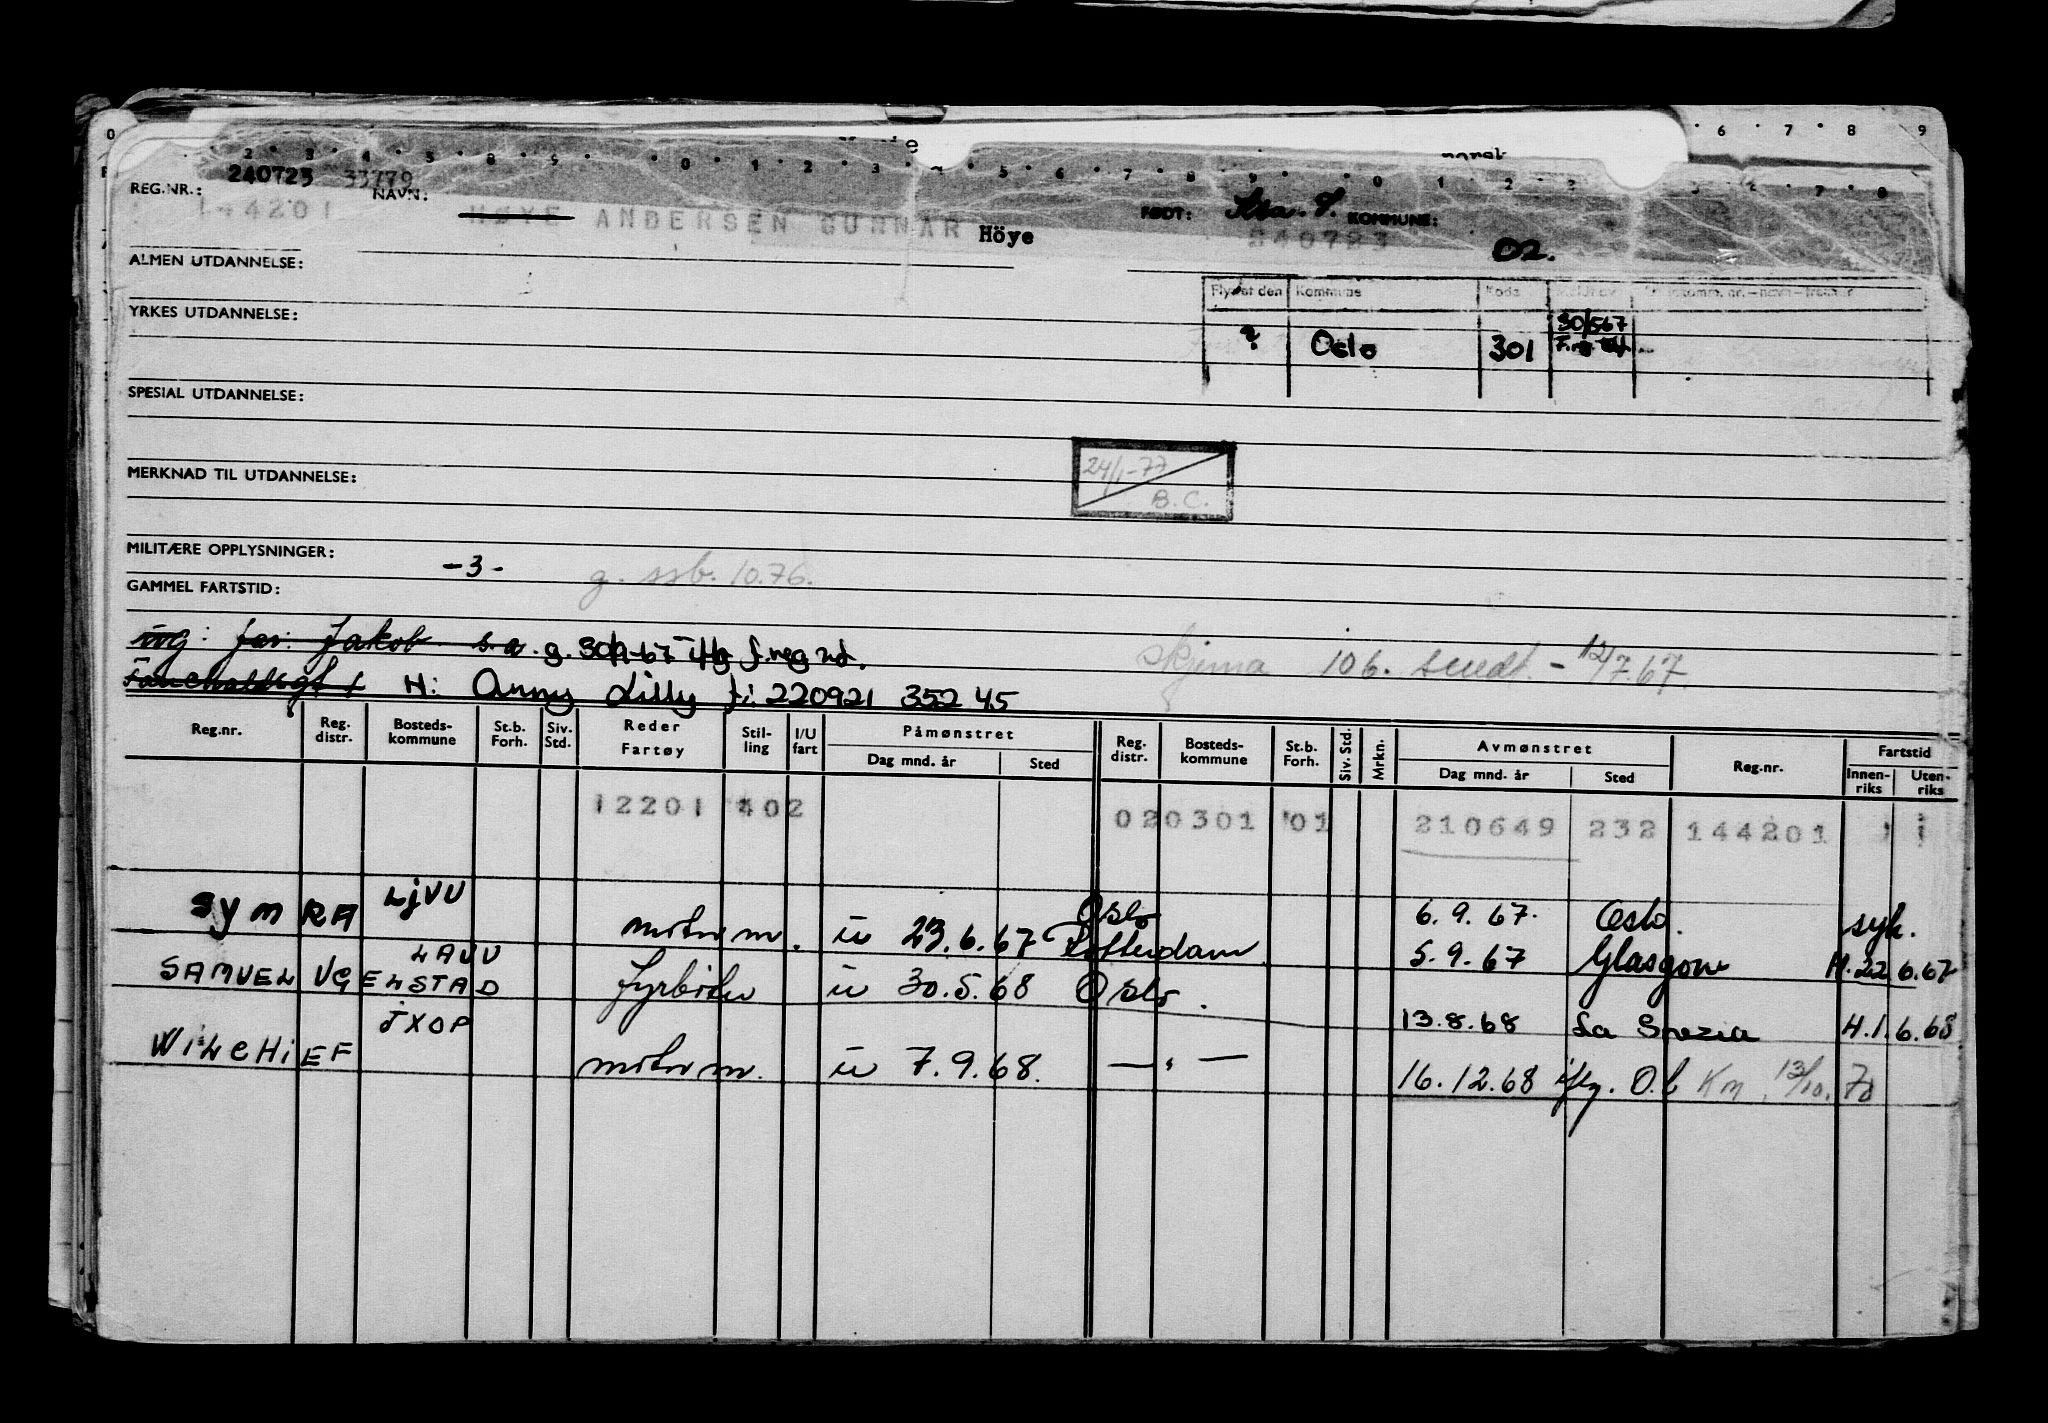 240723 33779
REG.NR.: NAVN: FØDT: KOMMUNE:
144201 HØYE ANDERSEN GUNNAR Höye 240723 02.
ALMEN UTDANNELSE:
Flyttet den Kommune Kode
YRKES UTDANNELSE:
30/567
? Oslo 301
SPESIAL UTDANNELSE:
MERKNAD TIL UTDANNELSE:
24/1-77
B.C.
MILITÆRE OPPLYSNINGER:
-3- g. ssb. 10.76.
GAMMEL FARTSTID:
far: Jakob s.a. g. 30/9-67 f.reg
Skjema 106. sendt. - 12/7.67.
H: Anny Lilly f: 220921 352 45
Reg.nr. Reg. distr. Bosteds-kommune St.b. Forh. Siv. Std. Reder Fartøy Stil-ling I/U fart Påmønstret Dag mnd. år Sted Reg. distr. Bosteds-kommune St.b. Forh. Siv. Std. Mrkn. Avmønstret Dag mnd. år Sted Reg.nr. Fartstid Innen-riks Uten-riks
12201 402 020301 01 210649 232 144201
LJVU
SYMRA motorm. u 23.6.67 Oslo 6.9.67. Oslo. syk.
Rotterdam 5.9.67 Glasgow H.22.6.67
LAUU
SAMUEL UGELSTAD fyrbøter u 30.5.68 Oslo.
JXOP 13.8.68 La Spezia H.1.6.68
WILCHIEF motorm. u 7.9.68. — " —
16.12.68 iflg. O.b Km. 13/10.70